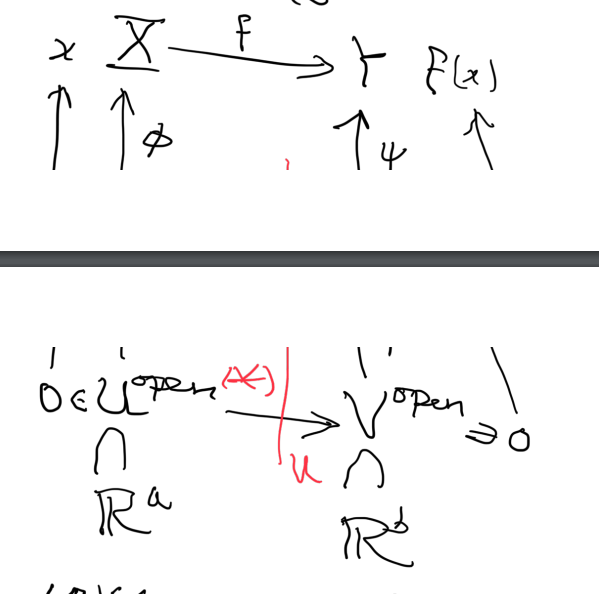 x X f Y f(x)
φ ψ
0 ∈ U open (*) V open ∋ 0
∩ u ∩
ℝ^a ℝ^b